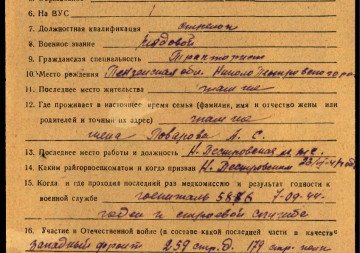 6. На ВУС 1
7. Должностная квалификация стрелок
8. Военное звание рядовой
9. Гражданская специальность Тракторист
10. Место рождения Пензенская обл. Николо
11. Последнее место жительства там же
12. Где проживает в настоящее время семья (фамилия, имя и отчество жены или
родителей и точный их адрес) там же
жена А. С.
13. Последнее место работы и должность Н.
14. Каким райгорвоенкоматом и когда призван Н.
15. Когда и где проходил последний раз медкомиссию и результат годности к
военной службе госпиталь 7-09-44-
годен к строевой службе
16. Участие в Отечественной войне (в составе какой последней части в качеств
Западный фронт 259 стр. д. 179 стр. полк